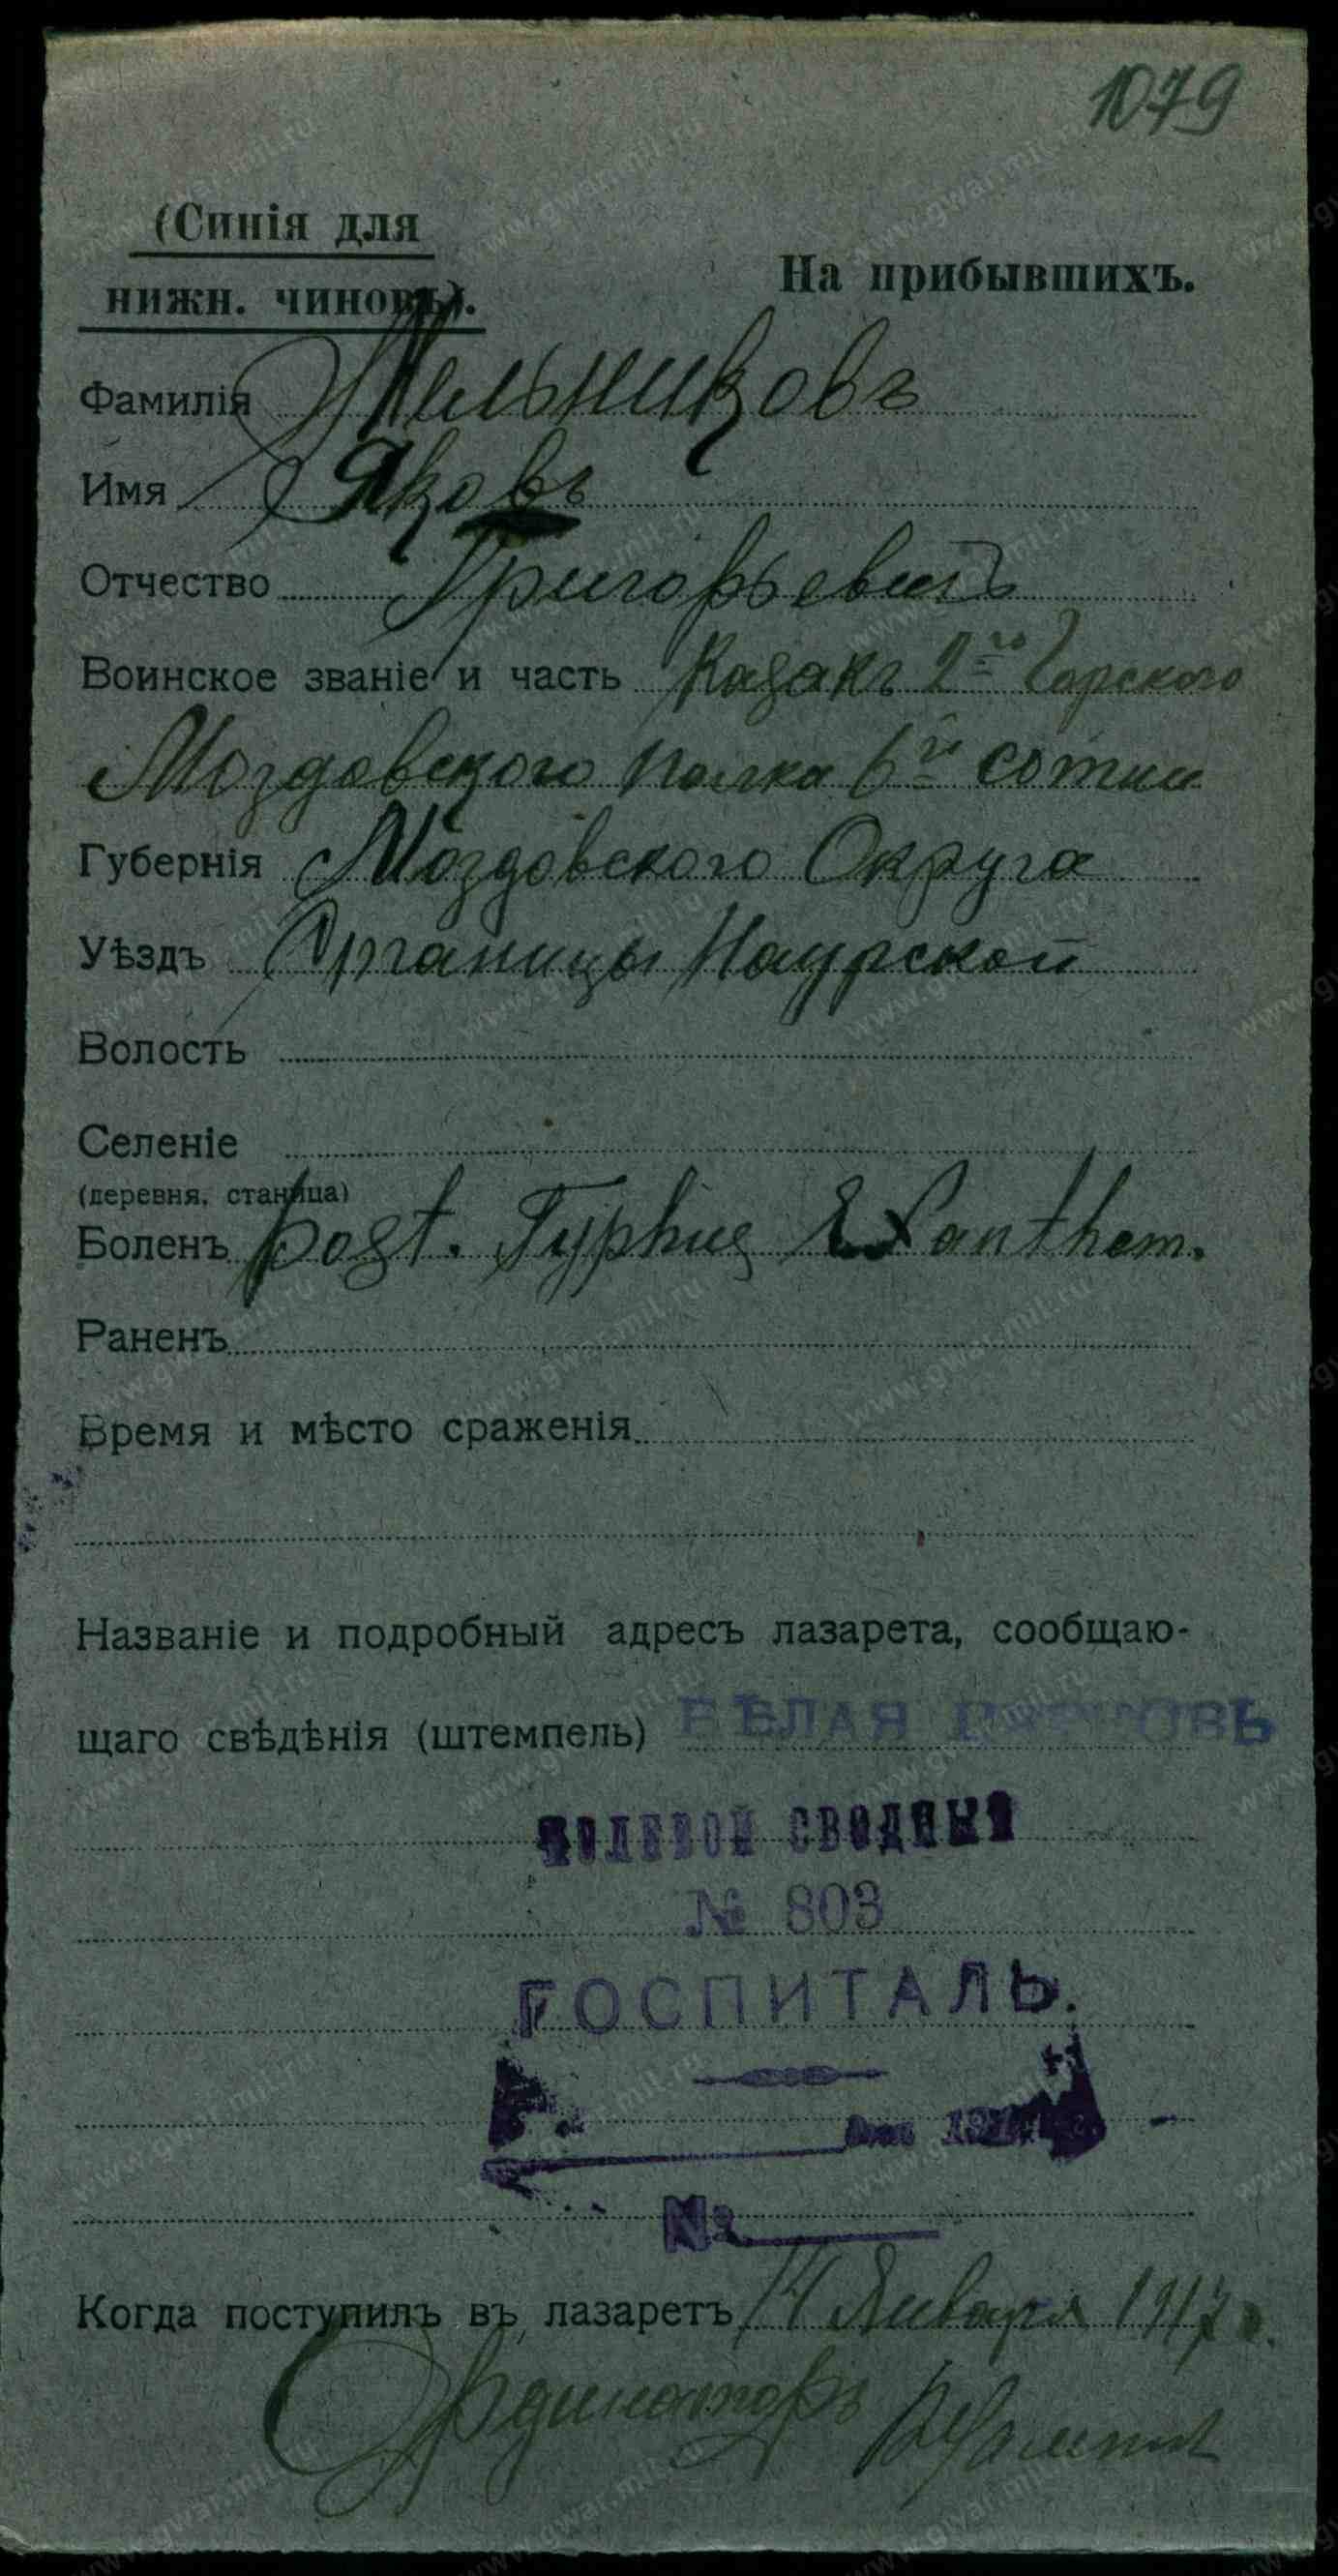 1079
(Синія для
нижн. чиновъ).
На прибывшихъ.
Фамилія Мельниковъ
Имя Яковъ
Отчество Григорьевичъ
Воинское званіе и часть Казакъ 2го Горского
Моздовского полка 6й сотни
Губернія Моздовского Округа
Уѣздъ Станицы Наурской
Волость
Селеніе
(деревня, станица)
Боленъ post. Typhus Exanthem.
Раненъ
Время и мѣсто сраженія
Названіе и подробный адресъ лазарета, сообщаю-
щаго свѣдѣнія (штемпель) БѢЛАЯ ЦЕРКОВЬ
ПОЛЕВОЙ СВОДНЫЙ
№ 803
ГОСПИТАЛЬ.
№
Когда поступилъ въ лазаретъ 14 Января 1917 г.
Ординаторъ
www.gwar.mil.ru